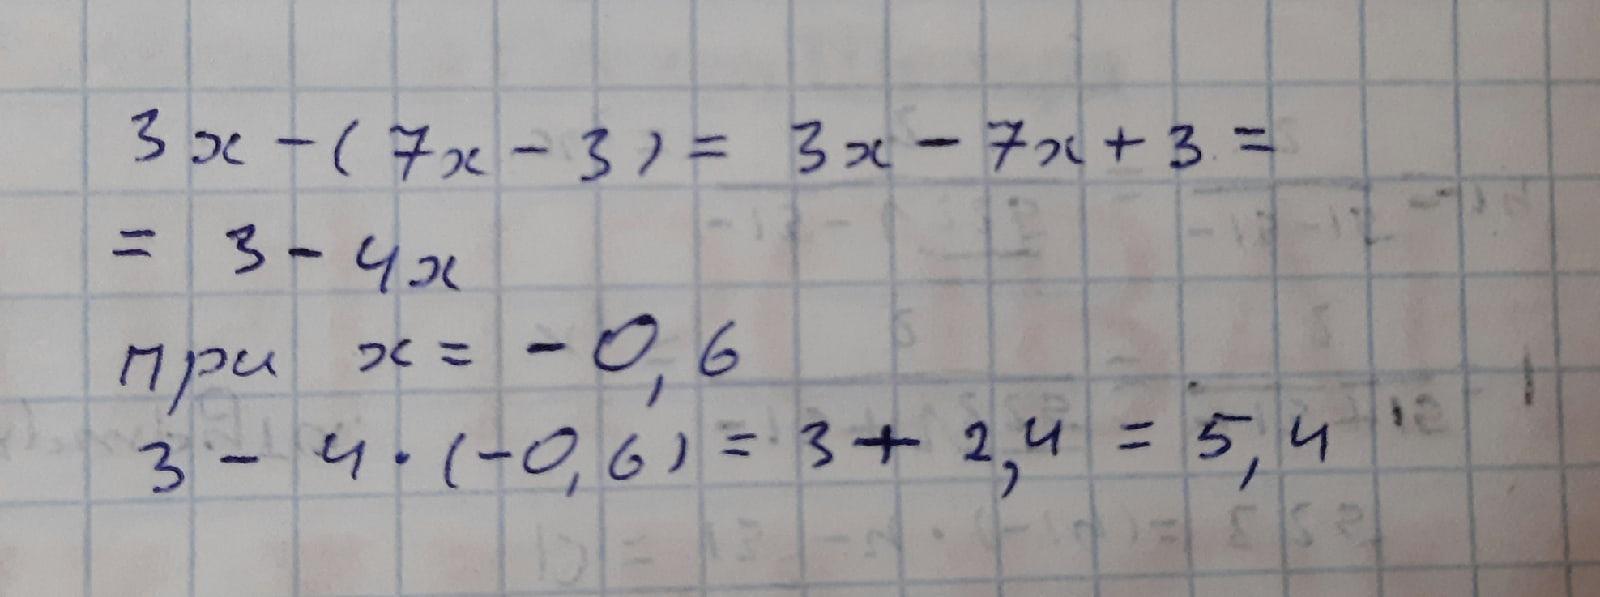 3x - (7x - 3) = 3x - 7x + 3 =
= 3 - 4x
при x = -0,6
3 - 4 · (-0,6) = 3 + 2,4 = 5,4